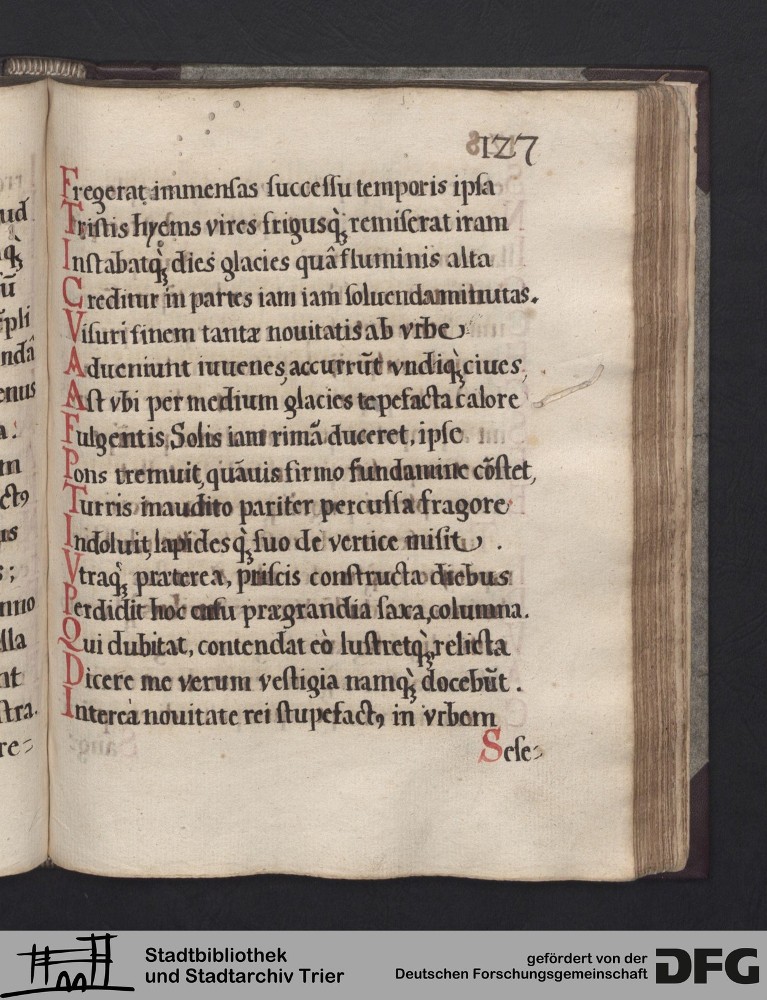 127
Fregerat immensas successu temporis ipsa
Tristis hyems vires frigusq̀ꝫ remiserat iram
Instabatq̀ꝫ dies glacies quâ fluminis alta
Creditur in partes iam iam soluenda minutas.
Visuri finem tantæ nouitatis ab vrbe
Adueniunt iuuenes, accurrūt vndiq̀ꝫ ciues,
Ast vbi per medium glacies tepefacta calore
Fulgentis Solis iam rimā duceret, ipse
Pons tremuit, quāuis firmo fundamine cōstet,
Turris inaudito pariter percussa fragore
Indoluit, lapidesq̀ꝫ suo de vertice misit .
Vtraq̀ꝫ præterea, priscis constructa diebus
Perdidit hoc casu prægrandia saxa, columna.
Qui dubitat, contendat eò lustretq̀ꝫ, relicta
Dicere me verum vestigia namq̀ꝫ docebūt .
Intereà nouitate rei stupefactꝰ in vrbem
Sese
ud
qꝫ
ū
pli
ndā
enus
a:
m
ctꝰ
s;
nno
lla
nt
stra.
re
Stadtbibliothek
und Stadtarchiv Trier
gefördert von der
Deutschen Forschungsgemeinschaft
DFG